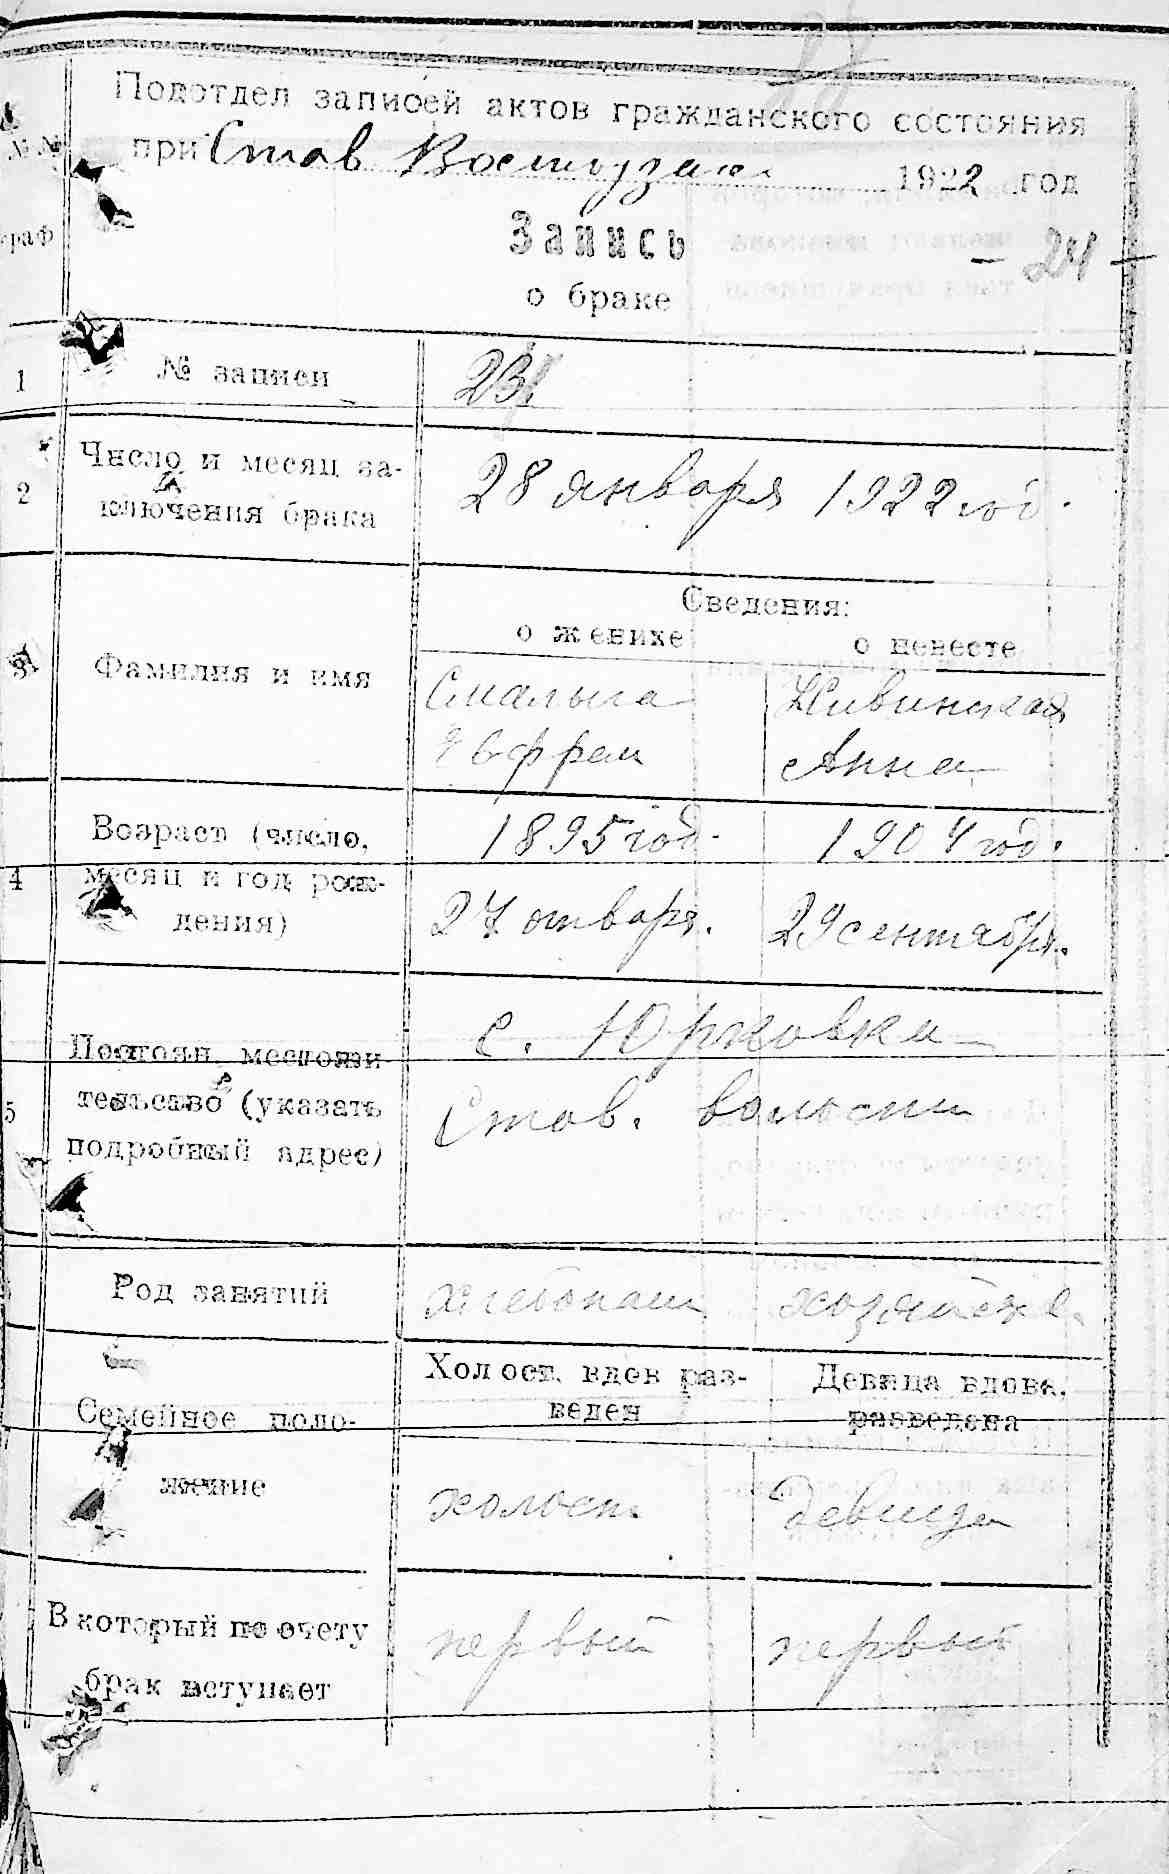 Подотдел записей актов гражданского состояния
при Став 1922 год
№№
граф
Запись
- 24 -
о браке
1 № записи 23
2 Число и месяц за-
ключения брака
28 января 1922 год.
Сведения:
о женихе о невесте
3 Фамилия и имя
Смалыга
Евфрем Анна
4 Возраст (число,
месяц и год рож-
дения)
1895 год. 1904 год.
27 января. 29 сентября.
5 Постоян. местожи
тельство (указать
подробный адрес)
с. Юрковки
Став. волости
Род занятий хлебопаш хозяйка.
Семейное поло-
жение
Холост. вдов раз-
веден
Девица вдова,
разведена
холост девица
В который по счету
брак вступает
первый первый